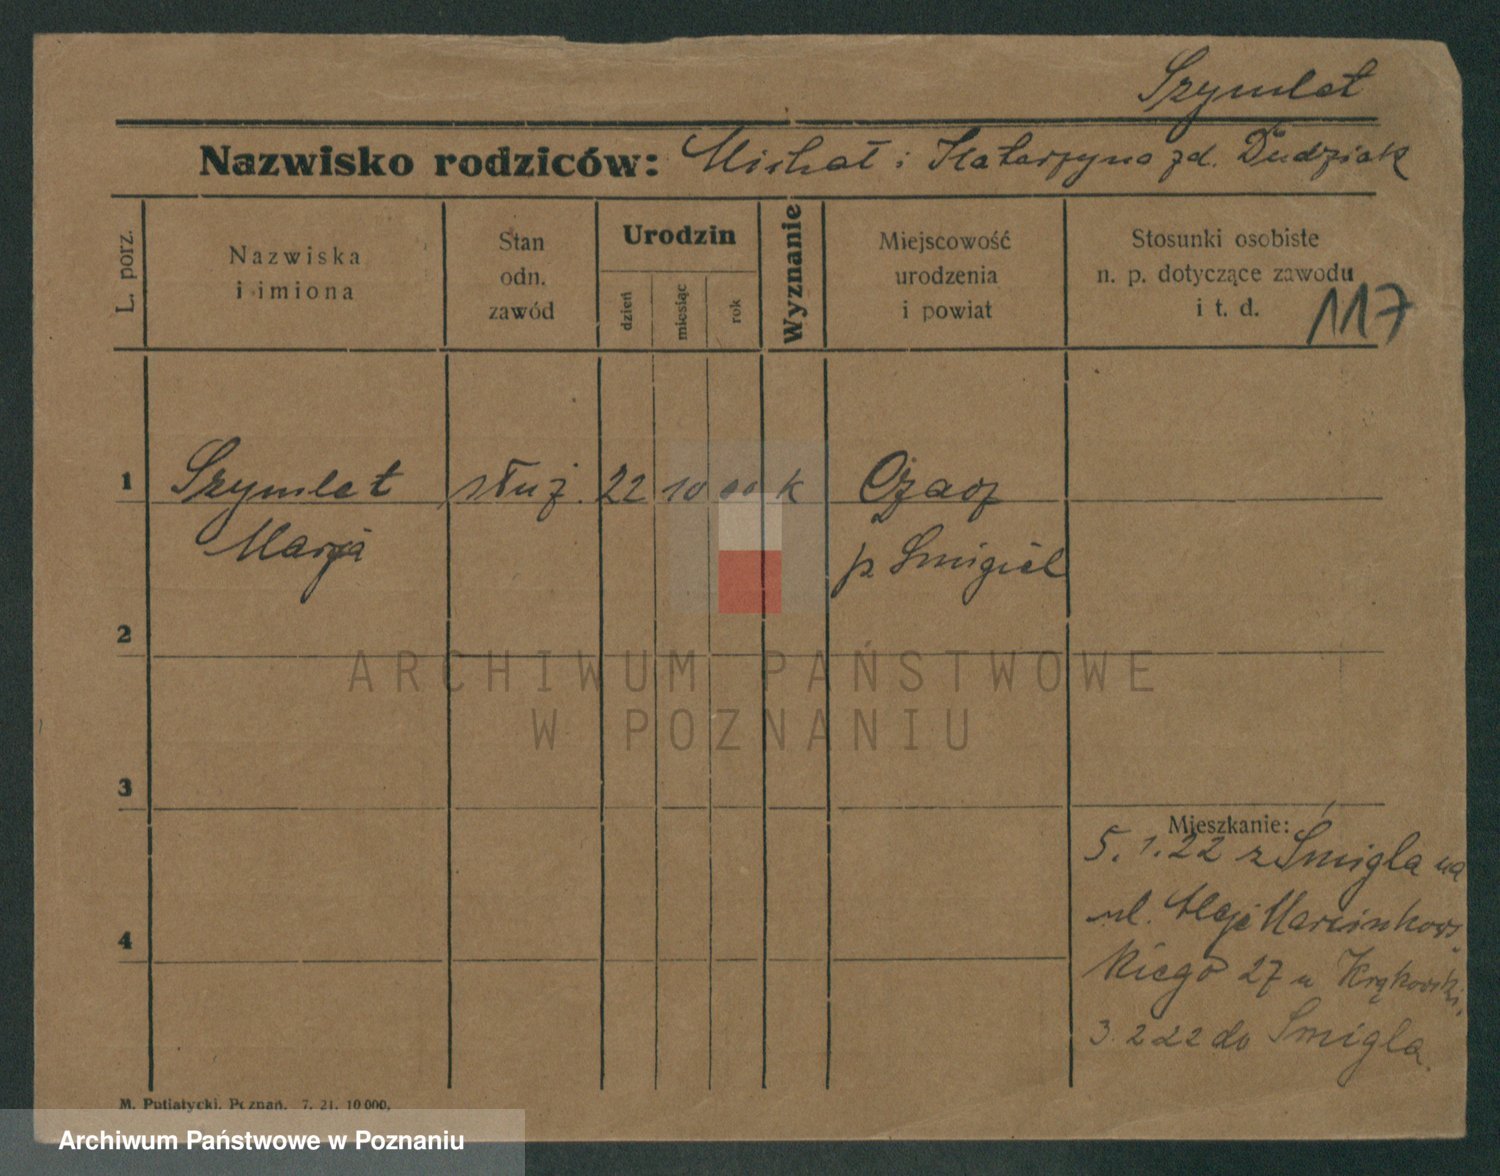 Szymlet
Nazwisko rodziców: Michał i Katarzyna zd. Dudziak
L. porz.
Nazwiska
i imiona
Stan
odn.
zawód
Urodzin
dzień
miesiąc
rok
Wyznanie
Miejscowość
urodzenia
i powiat
Stosunki osobiste
n. p. dotyczące zawodu
i t. d.
117
1 Szymlet służ. 22 10 00 k Czacz
Marja p Śmigiel
2
3
4
Mieszkanie:
5. 1. 22 z Śmigla na
ul. Aleje Marcinkows
kiego 27 u
3 2 22 do Śmigla.
M. Putiatycki, Poznań, 7. 21. 10 000.
ARCHIWUM PAŃSTWOWE
W POZNANIU
Archiwum Państwowe w Poznaniu